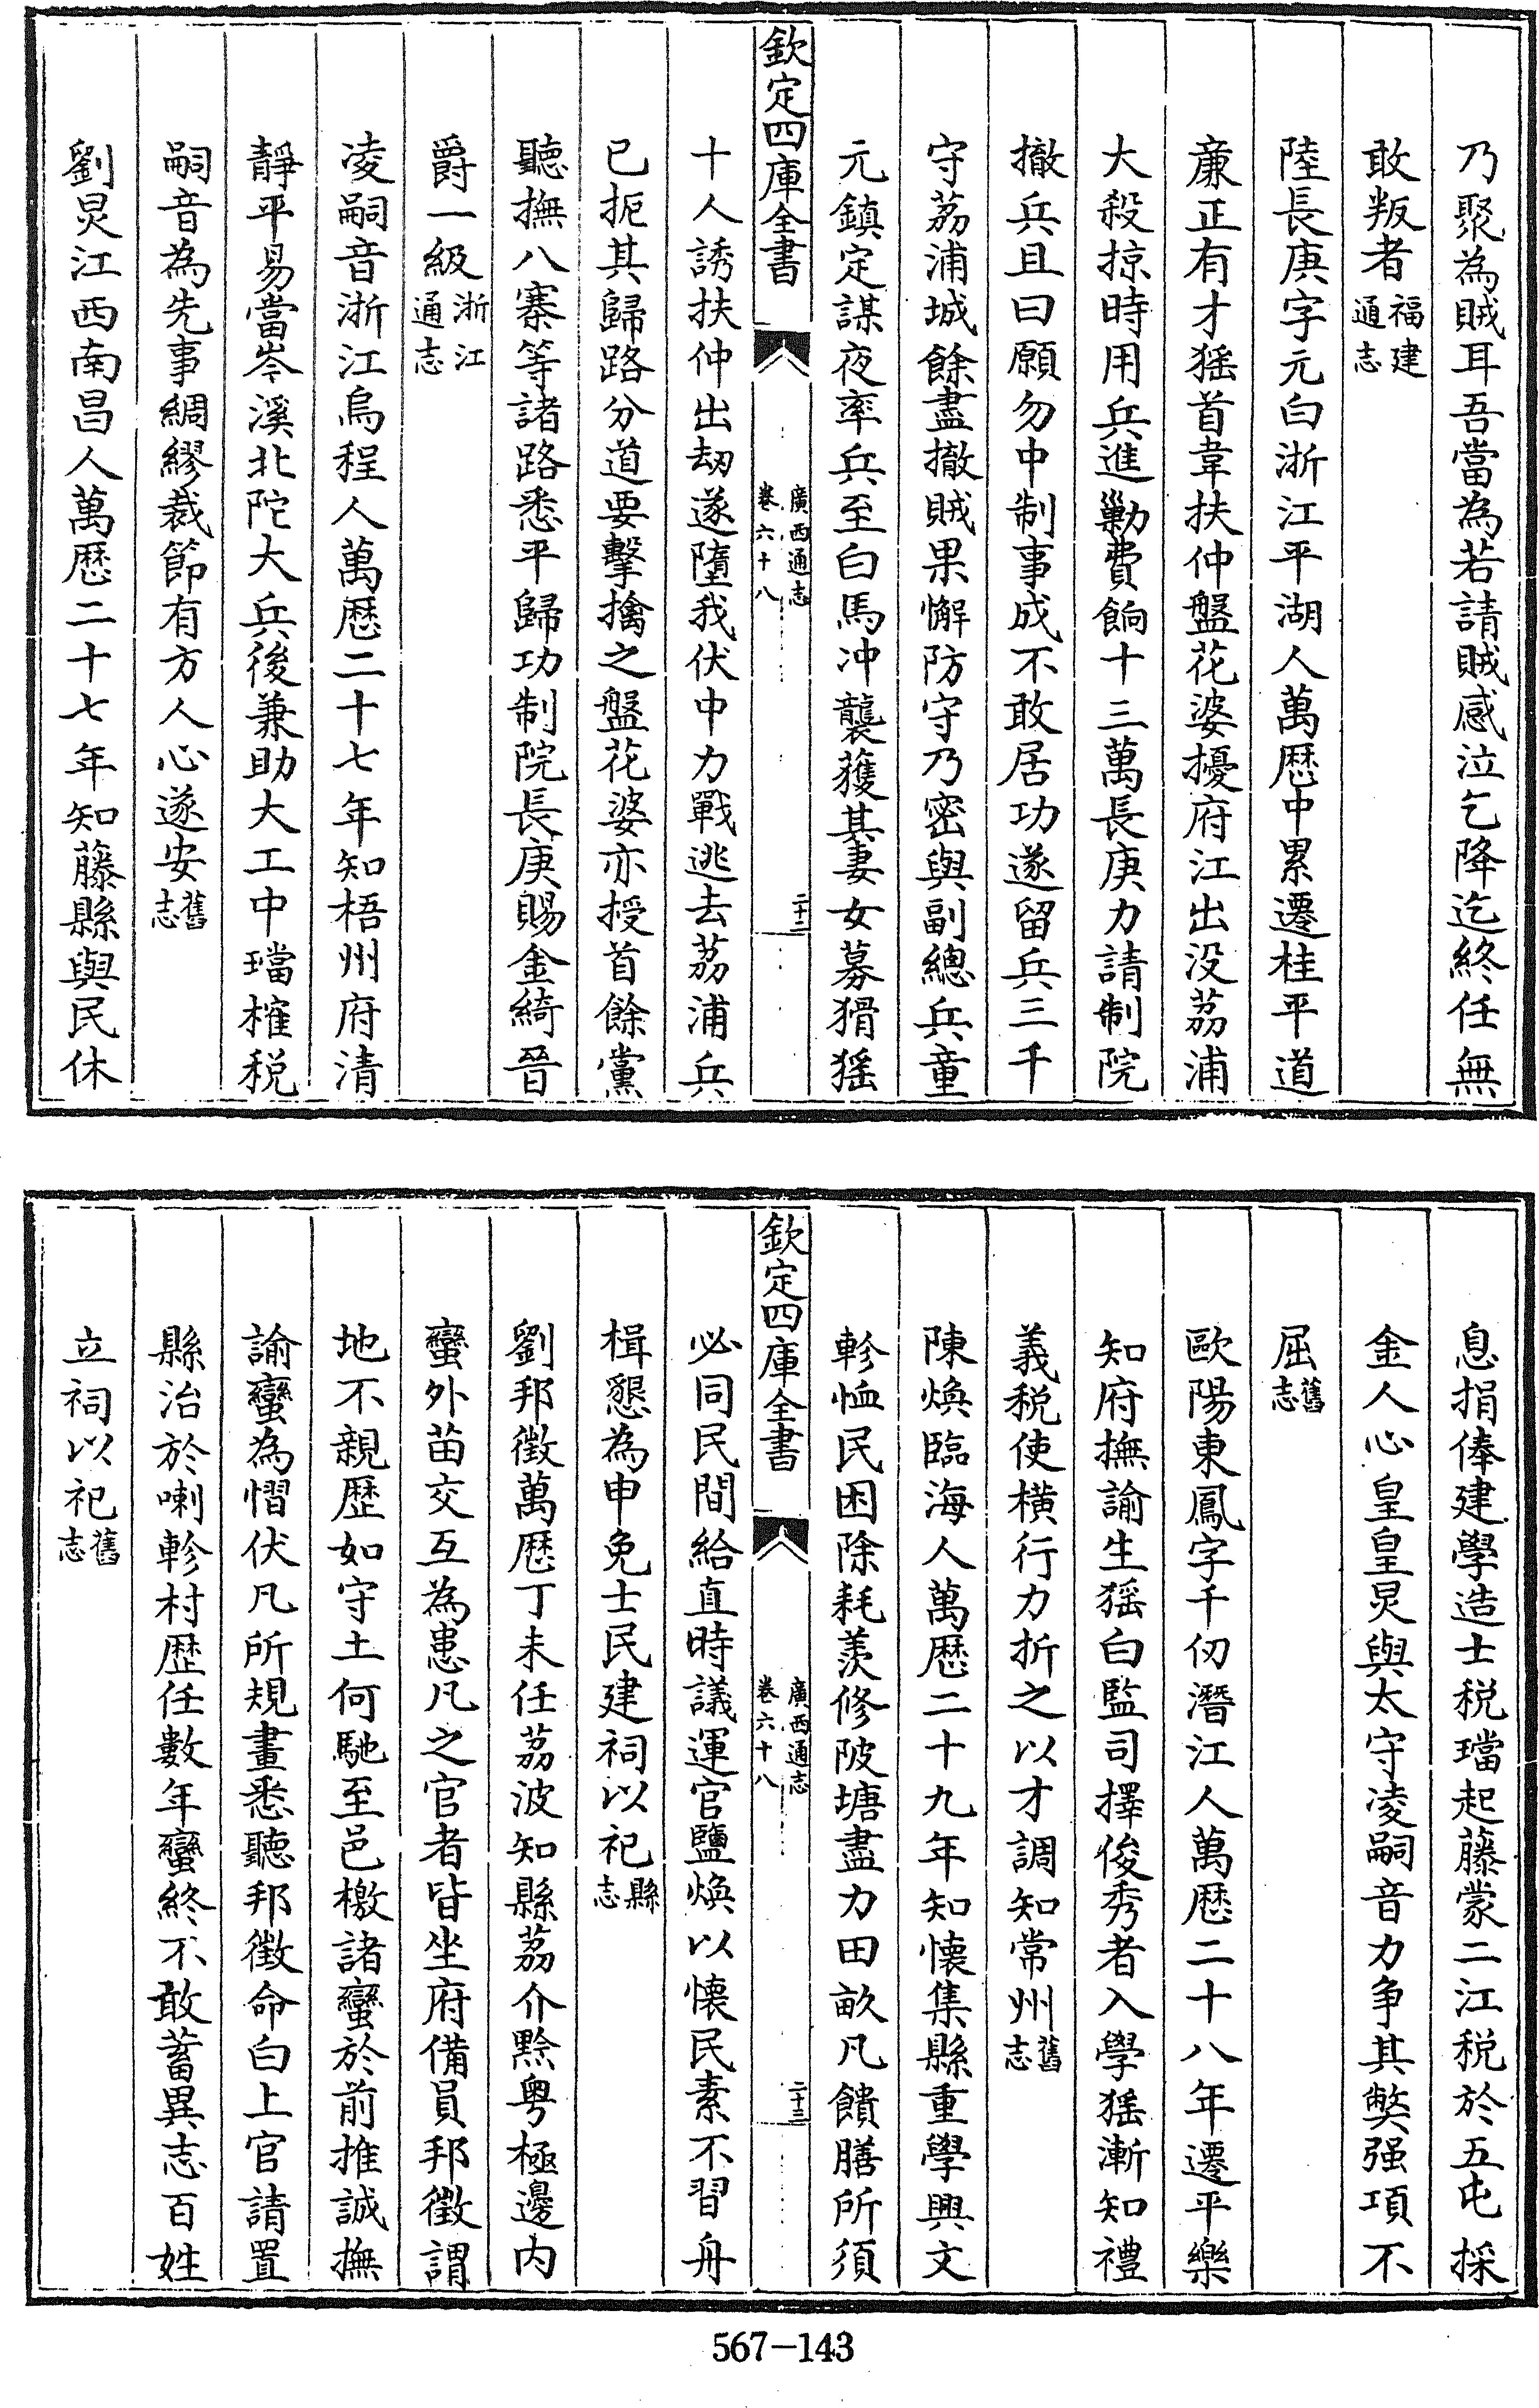 乃聚為賊耳吾當為若請賊感泣乞降迄終任無
敢叛者福建通志
陸長庚字元白浙江平湖人萬厯中累遷桂平道
亷正有才猺首韋扶仲盤花婆擾府江出没荔浦
大殺掠時用兵進勦費餉十三萬長庚力請制院
撤兵且曰願勿中制事成不敢居功遂留兵三千
守荔浦城餘盡撤賊果懈防守乃密與副總兵童
元鎮定謀夜率兵至白馬冲襲獲其妻女募猾猺
欽定四庫全書
廣西通志
卷六十八
二十二
十人誘扶仲出刼遂墮我伏中力戰逃去荔浦兵
已扼其歸路分道要擊擒之盤花婆亦授首餘黨
聽撫八寨等諸路悉平歸功制院長庚賜金綺晉
爵一級浙江通志
凌嗣音浙江烏程人萬厯二十七年知梧州府清
靜平易當岑溪北陀大兵後兼助大工中璫榷税
嗣音為先事綢繆裁節有方人心遂安舊志
劉炅江西南昌人萬厯二十七年知藤縣與民休
息捐俸建學造士税璫起藤蒙二江税於五屯採
金人心皇皇炅與太守凌嗣音力争其弊强項不
屈舊志
歐陽東鳳字千仞潛江人萬厯二十八年遷平樂
知府撫諭生猺白監司擇俊秀者入學猺漸知禮
義税使橫行力折之以才調知常州舊志
陳煥臨海人萬厯二十九年知懐集縣重學興文
軫恤民困除耗羨修陂塘盡力田畝凡饋膳所須
欽定四庫全書
廣西通志
卷六十八
二十三
必同民間給直時議運官鹽煥以懐民素不習舟
楫懇為申免士民建祠以祀縣志
劉邦徵萬厯丁未任荔波知縣荔介黔粤極邊内
蠻外苗交互為患凡之官者皆坐府備員邦徵謂
地不親歴如守土何馳至邑檄諸蠻於前推誠撫
諭蠻為慴伏凡所規畫悉聽邦徵命白上官請置
縣治於喇軫村歴任數年蠻終不敢蓄異志百姓
立祠以祀舊志
567-143